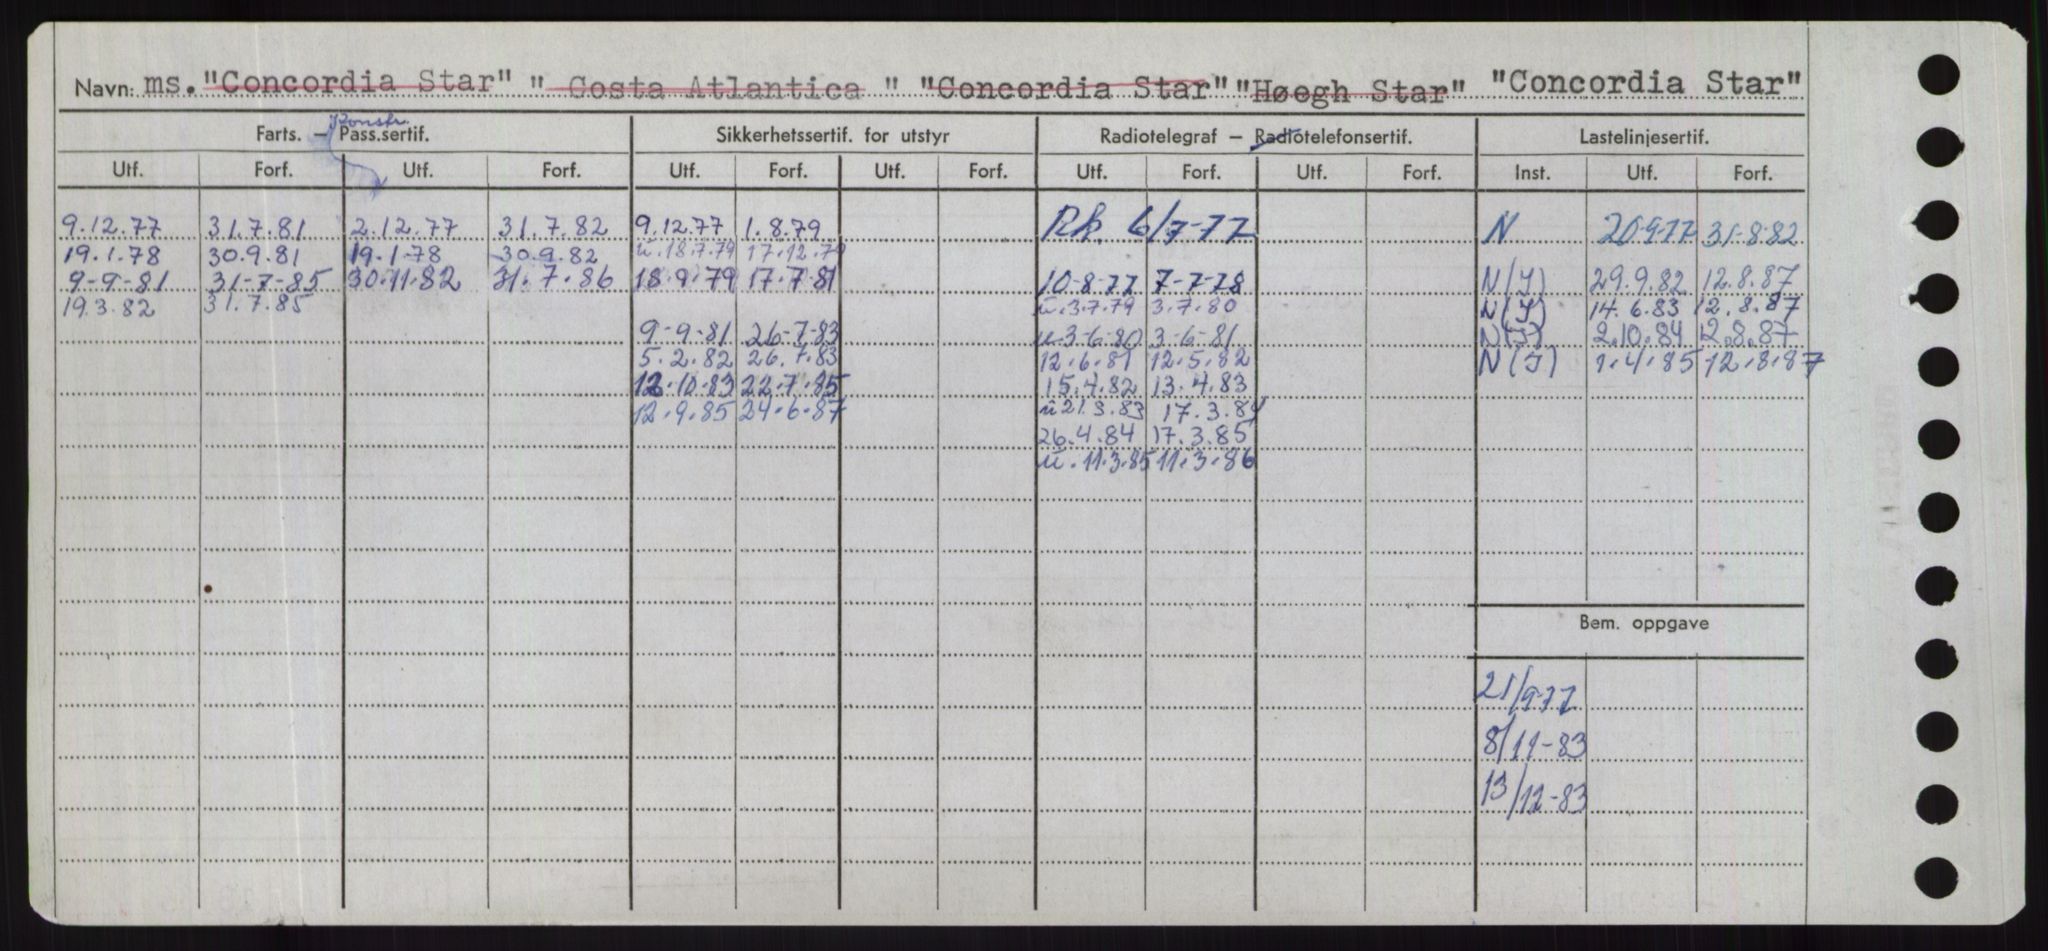 Navn: ms. "Concordia Star" " Costa Atlantica " "Concordia Star" "Høegh Star" "Concordia Star"
Konstr.
Farts. – Pass.sertif. Sikkerhetssertif. for utstyr Radiotelegraf – Radiotelefonsertif. Lastelinjesertif.
Utf. Forf. Utf. Forf. Utf. Forf. Utf. Forf. Utf. Forf. Utf. Forf. Inst. Utf. Forf.
9.12.77 31.7.81 2.12.77 31.7.82 9.12.77 1.8.79 Rk. 6/7-77 N 20-9-77 31-8-82
19.1.78 30.9.81 19.1.78 30.9.82 u.18.7.79 17.12.79
9-9-81 31-7-85 30.11.82 31.7.86 18.9.79 17.7.81 10-8-77 7-7-78 N(J) 29.9.82 12.8.87
19.3.82 31.7.85 u.3.7.79 3.7.80 N(J) 14.6.83 12.8.87
9-9-81 26-7-83 u 3-6-80 3-6-81 N(J) 2.10.84 12.8.87
5.2.82 26.7.83 12.6.81 12.5.82 N(J) 1.4.85 12.8.87
12.10.83 22.7.85 15.4.82 13.4.83
12.9.85 24.6.87 u 21.3.83 17.3.84
26.4.84 17.3.85
u.11.3.85 11.3.86
Bem. oppgave
21/9-77
8/11-83
13/12-83